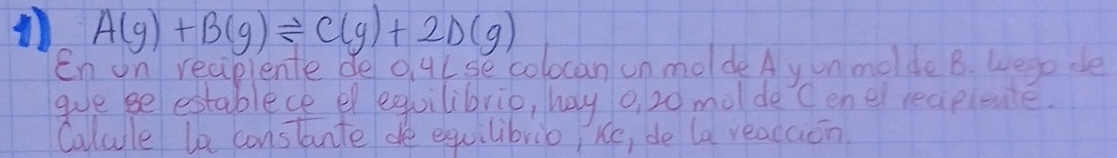 1) A(g) + B(g) ⇌ C(g) + 2D(g)
En un recipiente de 0,4L se colocan un mol de A y un mol de B. Luego de
que se establece el equilibrio, hay 0,20 mol de C en el recipiente.
Calcule la constante de equilibrio, Kc, de la reacción.